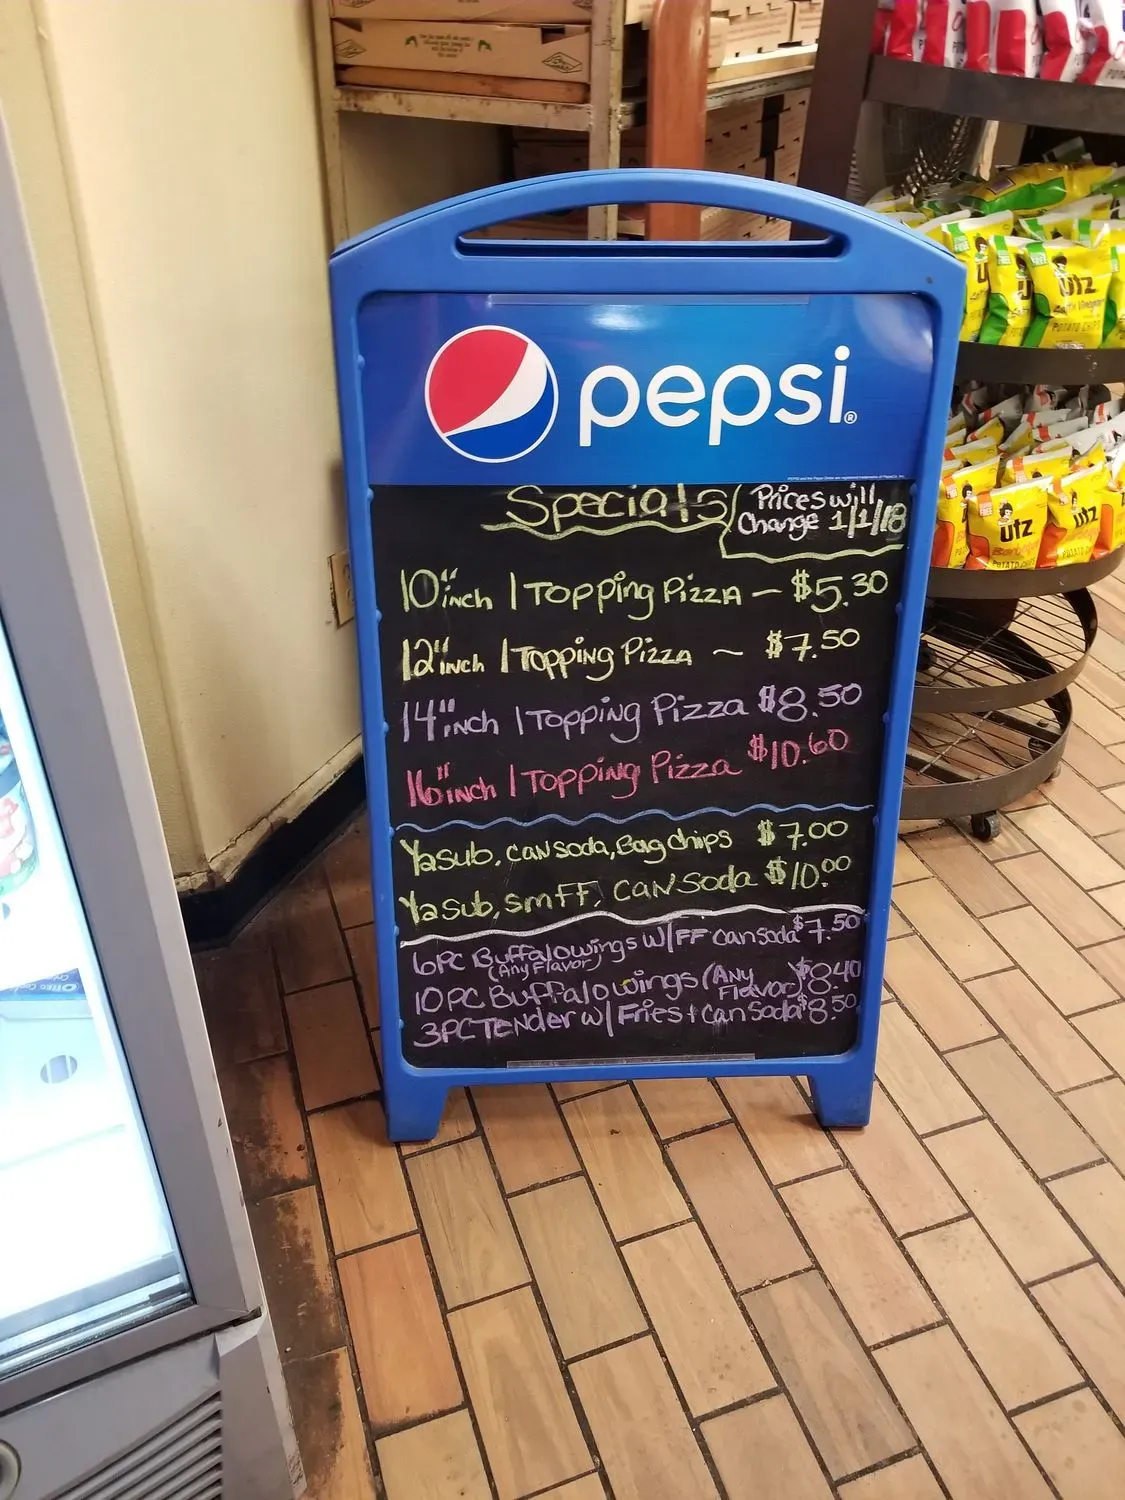 pepsi®
Specials
Prices will
Change 1/1/18
10" inch 1 Topping Pizza — $5.30
12" inch 1 Topping Pizza ~ $7.50
14" inch 1 Topping Pizza $8.50
16" inch 1 Topping Pizza $10.60
½ sub, can soda, Bag chips $7.00
½ sub, sm FF, can soda $10.00
6PC Buffalo wings w/FF can soda $7.50
(Any Flavor)
10PC Buffalo wings (Any Flavor) $8.40
3PC Tender w/ Fries + can soda $8.50
utz
POTATO CHIPS
utz
POTATO CHIPS
utz